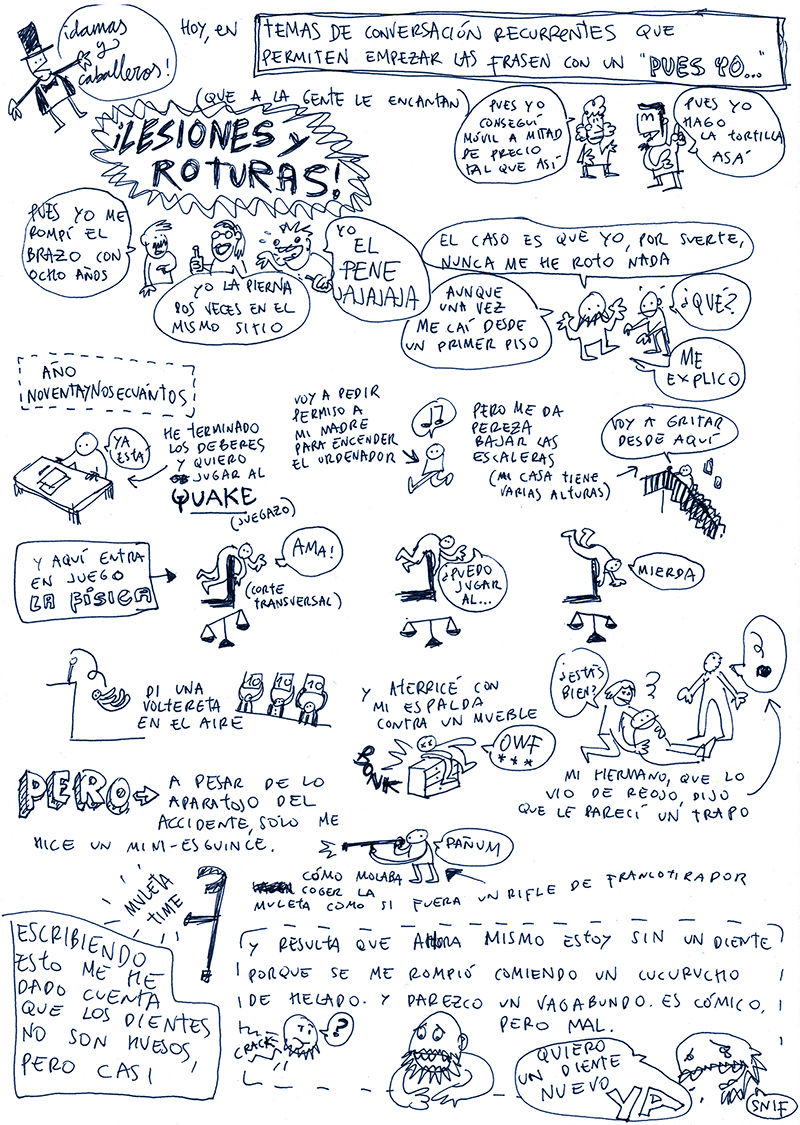 ¡DAMAS
Y
CABALLEROS!
HOY, EN
TEMAS DE CONVERSACIÓN RECURRENTES QUE
PERMITEN EMPEZAR LAS FRASEN CON UN "PUES YO..."
(QUE A LA GENTE LE ENCANTAN)
¡LESIONES Y
ROTURAS!
PUES YO
CONSEGUÍ
MÓVIL A MITAD
DE PRECIO
TAL QUE ASÍ
PUES YO
HAGO
LA TORTILLA
ASÁ
PUES YO ME
ROMPÍ EL
BRAZO CON
OCHO AÑOS
YO LA PIERNA
DOS VECES EN EL
MISMO SITIO
YO
EL
PENE
JAJAJAJA
EL CASO ES QUE YO, POR SUERTE,
NUNCA ME HE ROTO NADA
AUNQUE
UNA VEZ
ME CAÍ DESDE
UN PRIMER PISO
¿QUÉ?
ME
EXPLICO
AÑO
NOVENTAYNOSECUÁNTOS
YA
ESTÁ
HE TERMINADO
LOS DEBERES
Y QUIERO
JUGAR AL
QUAKE
(JUEGAZO)
VOY A PEDIR
PERMISO A
MI MADRE
PARA ENCENDER
EL ORDENADOR
PERO ME DA
PEREZA
BAJAR LAS
ESCALERAS
(MI CASA TIENE
VARIAS ALTURAS)
VOY A GRITAR
DESDE AQUÍ
Y AQUÍ ENTRA
EN JUEGO
LA FÍSICA
AMA!
(CORTE
TRANSVERSAL)
¿PUEDO
JUGAR
AL...
MIERDA
DI UNA
VOLTERETA
EN EL AIRE
10 10 10
Y ATERRICÉ CON
MI ESPALDA
CONTRA UN MUEBLE
BONK
OWF
***
¿ESTÁS
BIEN?
?
MI HERMANO, QUE LO
VIO DE REOJO, DIJO
QUE LE PARECÍ UN TRAPO
PERO
A PESAR DE LO
APARATOJO DEL
ACCIDENTE, SÓLO ME
HICE UN MINI-ESGUINCE.
PAÑUM
CÓMO MOLABA
COGER LA
MULETA COMO SI FUERA UN RIFLE DE FRANCOTIRADOR
MULETA
TIME
ESCRIBIENDO
ESTO ME HE
DADO CUENTA
QUE LOS DIENTES
NO SON HUESOS,
PERO CASI
Y RESULTA QUE AHORA MISMO ESTOY SIN UN DIENTE
PORQUE SE ME ROMPIÓ COMIENDO UN CUCURUCHO
DE HELADO. Y PAREZCO UN VAGABUNDO. ES CÓMICO,
PERO MAL.
CRACK
?
QUIERO
UN DIENTE
NUEVO
YA
SNIF